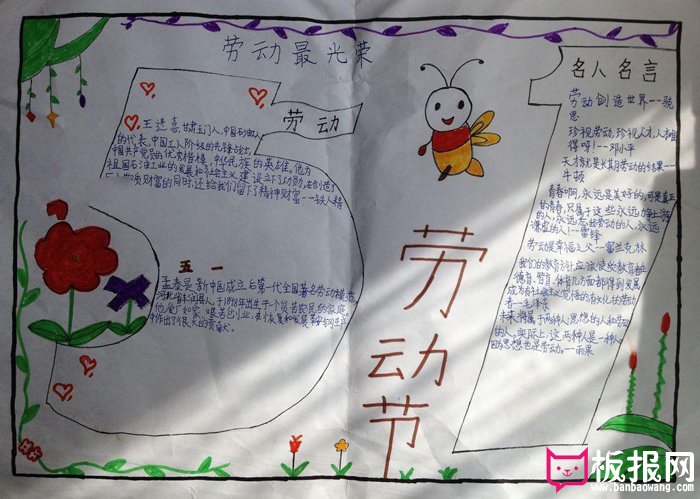 劳动最光荣
劳动
王进喜,甘肃玉门人,中国石油工人
的代表,中国工人阶级的先锋战士,
中国共产党员的优秀楷模,中华民族的英雄。他为
祖国石油工业的发展和社会主义建设立下了功勋,在创造了
财富的同时,还给我们留下了精神财富--铁人精
五一
孟泰是新中国成立后第一代全国著名劳动模范,
河北省丰润县人。于1898年出生于一个贫苦农民的家庭。
他爱厂如家,艰苦创业,在恢复和发展鞍钢生产
中作出了很大的贡献。
劳动节
名人名言
劳动创造世界--
思
珍视劳动,珍视人才,人才难
得呀!--邓小平
天才就是长期劳动的结果--
牛顿
青春啊,永远是美好的,可是真正
的青春,只属于这些永远力争上游
的人,永远忘我劳动的人,永远
谦虚的人!--雷锋
劳动是幸福之父--富兰克林
我们的教育方针,应该使受教育者在
德育、智育、体育几方面都得到发展,
成为有社会主义觉悟的有文化的劳动
者--毛泽东
未来将属于两种人:思想的人和劳动
的人,实际上,这两种人是一种人,
因为思想也是劳动。--雨果
板报网
www.banbaowang.com